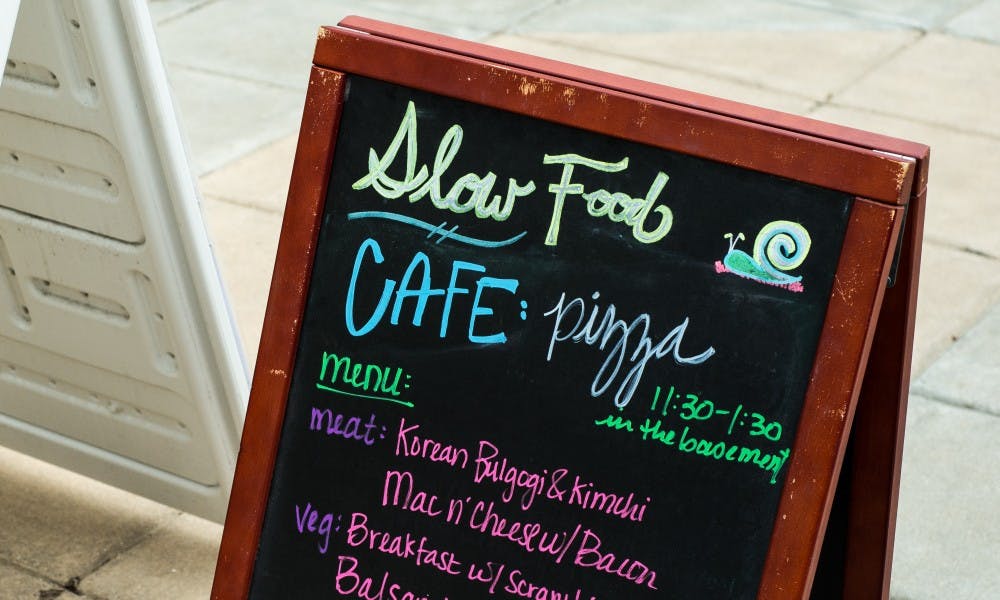 Slow Food
CAFE: pizza
menu:
11:30-1:30
in the basement
meat: Korean Bulgogi & Kimchi
Mac n' Cheese w/ Bacon
veg: Breakfast w/